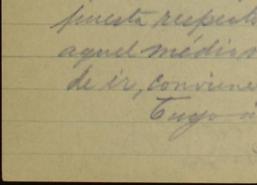 puesta respecto
aquel médico
de ir, conviene
Tuyo a